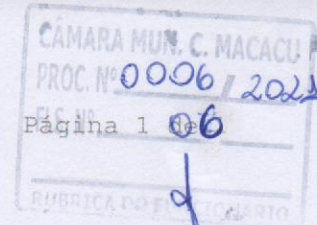 CÂMARA MUN. C. MACACU
PROC. Nº 0006 / 2021
FLS. Nº 06
Página 1 de
RUBRICA DO FUNCIONÁRIO